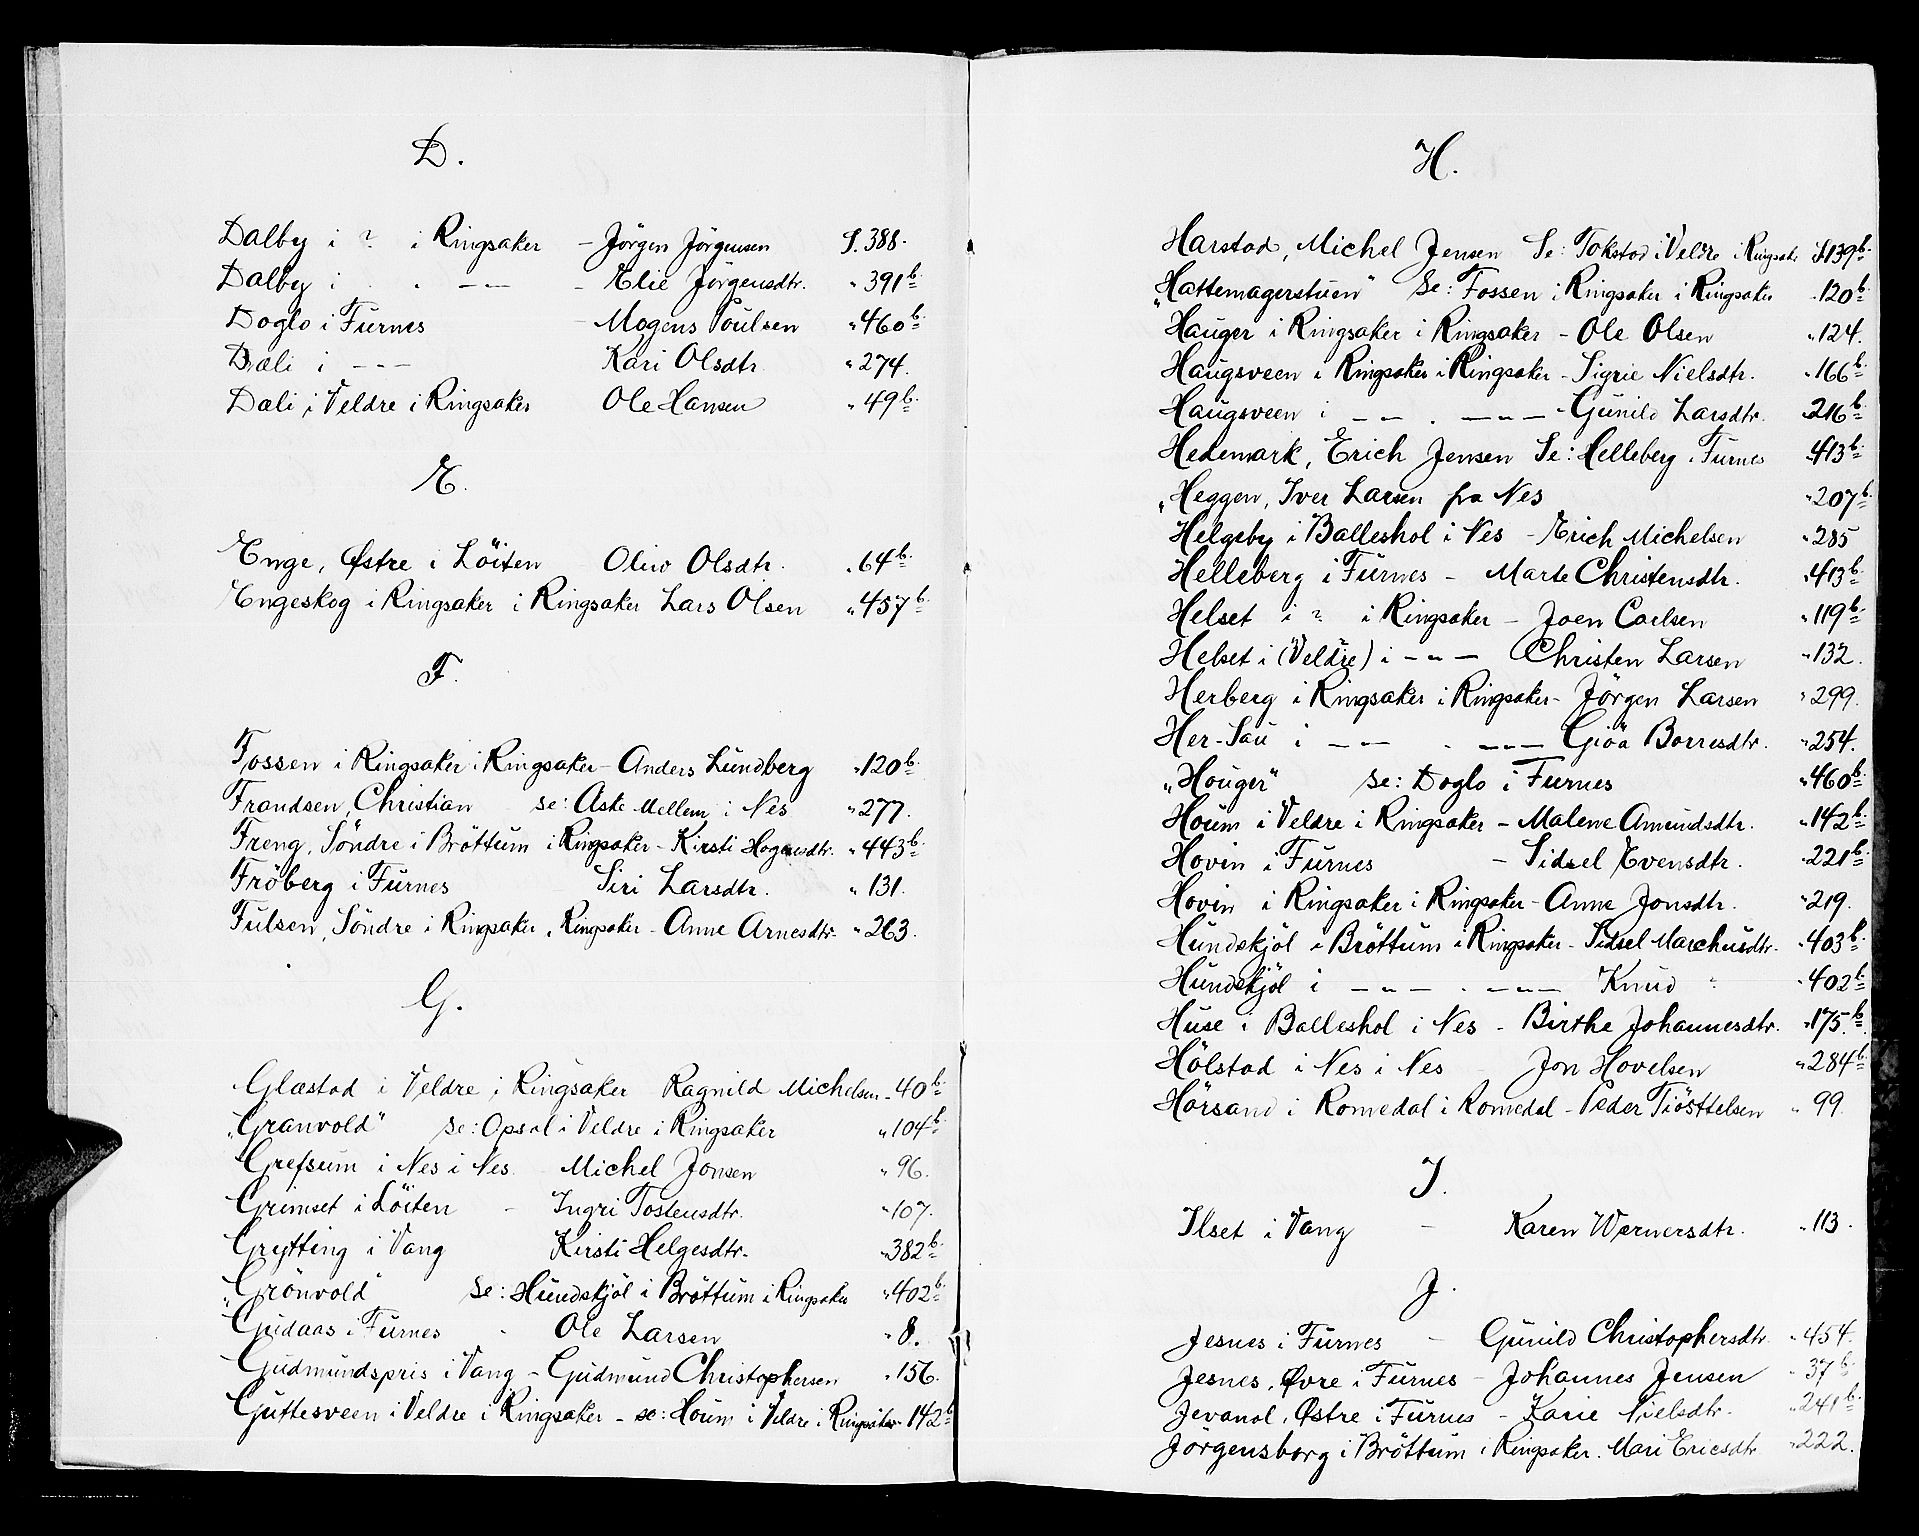 D.
Dalby i ? i Ringsaker - Jörgen Jörgensen S. 388.
Dalby i . . - " - - Elie Jörgensdtr. " 391 b.
Doglo i Furnes - Mogens Poulsen " 460 b.
Dæli i - " - Kari Olsdtr. " 274.
Dæli i Veldre i Ringsaker Ole Hansen " 49 b.
E.
Enge, Østre i Löiten Oliv Olsdtr. " 64 b.
Engeskog i Ringsaker i Ringsaker Lars Olsen " 457 b.
F.
Fossen i Ringsaker i Ringsaker - Anders Lundberg " 120 b.
Frandsen, Christian se: Aske mellem i Nes " 277.
Freng, Söndre i Bröttum i Ringsaker - Kirsti Hogensdtr. " 443 b.
Fröberg i Furnes Siri Larsdtr. " 131.
Fulsen, Söndre i Ringsaker i Ringsaker - Anne Arnesdtr. " 263.
G.
Glæstad i Veldre i Ringsaker Ragnild Michelsen " 40 b.
"Granvold" se: Opsal i Veldre i Ringsaker " 104 b.
Grefsum i Nes i Nes Michel Jonsen " 96.
Grimset i Löiten - Ingri Tostensdtr. " 107.
Grytting i Vang Kirsti Helgesdtr. " 382 b.
"Grönvold" se: Hundskjöl i Bröttum i Ringsaker " 402 b.
Gudaas i Furnes - Ole Larsen " 8.
Gudmundspris i Vang - Gudmund Christophersen " 156.
Guttesveen i Veldre i Ringsaker - se: Houm i Veldre i Ringsaker " 142 b
H.
Harstad, Michel Jensen Se: Tokstad i Veldre i Ringsaker S 139 b.
"Hattemagerstuen" Se: Fossen i Ringsaker i Ringsaker " 120 b.
Hauger i Ringsaker i Ringsaker - Ole Olsen " 124.
Haugsveen i Ringsaker i Ringsaker - Sigrie Nielsdtr. " 166 b.
Haugsveen i - " - . - " - Gunild Larsdtr. " 216 b.
Hedemark, Erich Jensen Se: Helleberg i Furnes " 413 b.
"Heggen, Iver Larsen fra Nes " 207 b.
Helgeby i Balleshol i Nes - Erich Michelsen " 285
Helleberg i Furnes - Marte Christensdtr. " 413 b.
Helset i ? i Ringsaker - Joen Carlsen " 119 b.
Helset i (Veldre) i - " - Christen Larsen " 132.
Herberg i Ringsaker i Ringsaker - Jörgen Larsen " 299.
Her-Sau i - " - . - " - Giöa Borresdtr. " 254.
"Houger" se: Doglo i Furnes " 460 b.
Houm i Veldre i Ringsaker - Malene Amundsdtr. " 142 b.
Hovin i Furnes - Sidsel Evensdtr. " 221 b.
Hovin i Ringsaker i Ringsaker - Anne Jonsdtr. " 219.
Hundskjöl i Bröttum i Ringsaker - Sidsel Marchusdtr. " 403 b.
Hundskjöl i - " - . - " - Knud " 402 b.
Huse i Balleshol i Nes - Birthe Johannesdtr. " 175 b.
Hölstad i Nes i Nes - Jon Hovelsen " 284 b.
Hörsand i Romedal i Romedal - Peder Tiösttelsen " 99.
I.
Ilset i Vang - Karen Wernersdtr. " 113.
J.
Jesnes i Furnes - Gunild Christophersdtr. " 454.
Jesnes, Øvre i Furnes - Johannes Jensen " 37 b.
Jevanol, Østre i Furnes - Karie Nielsdtr. " 241 b.
Jörgensborg i Bröttum i Ringsaker. Mari Ericsdtr. " 222.